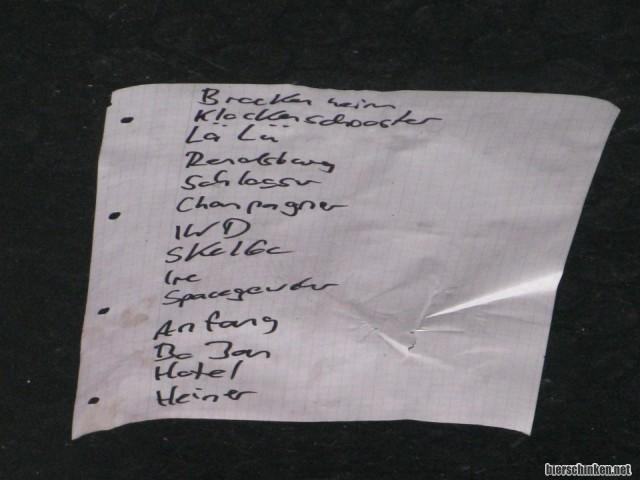 Brocken heim
Klockenschooster
Lä Lü
Rendsburg
Schlosser
Champagner
IWD
SkelGe
Ire
Anfang
Bo Jan
Hotel
Heiner
bierschinken.net